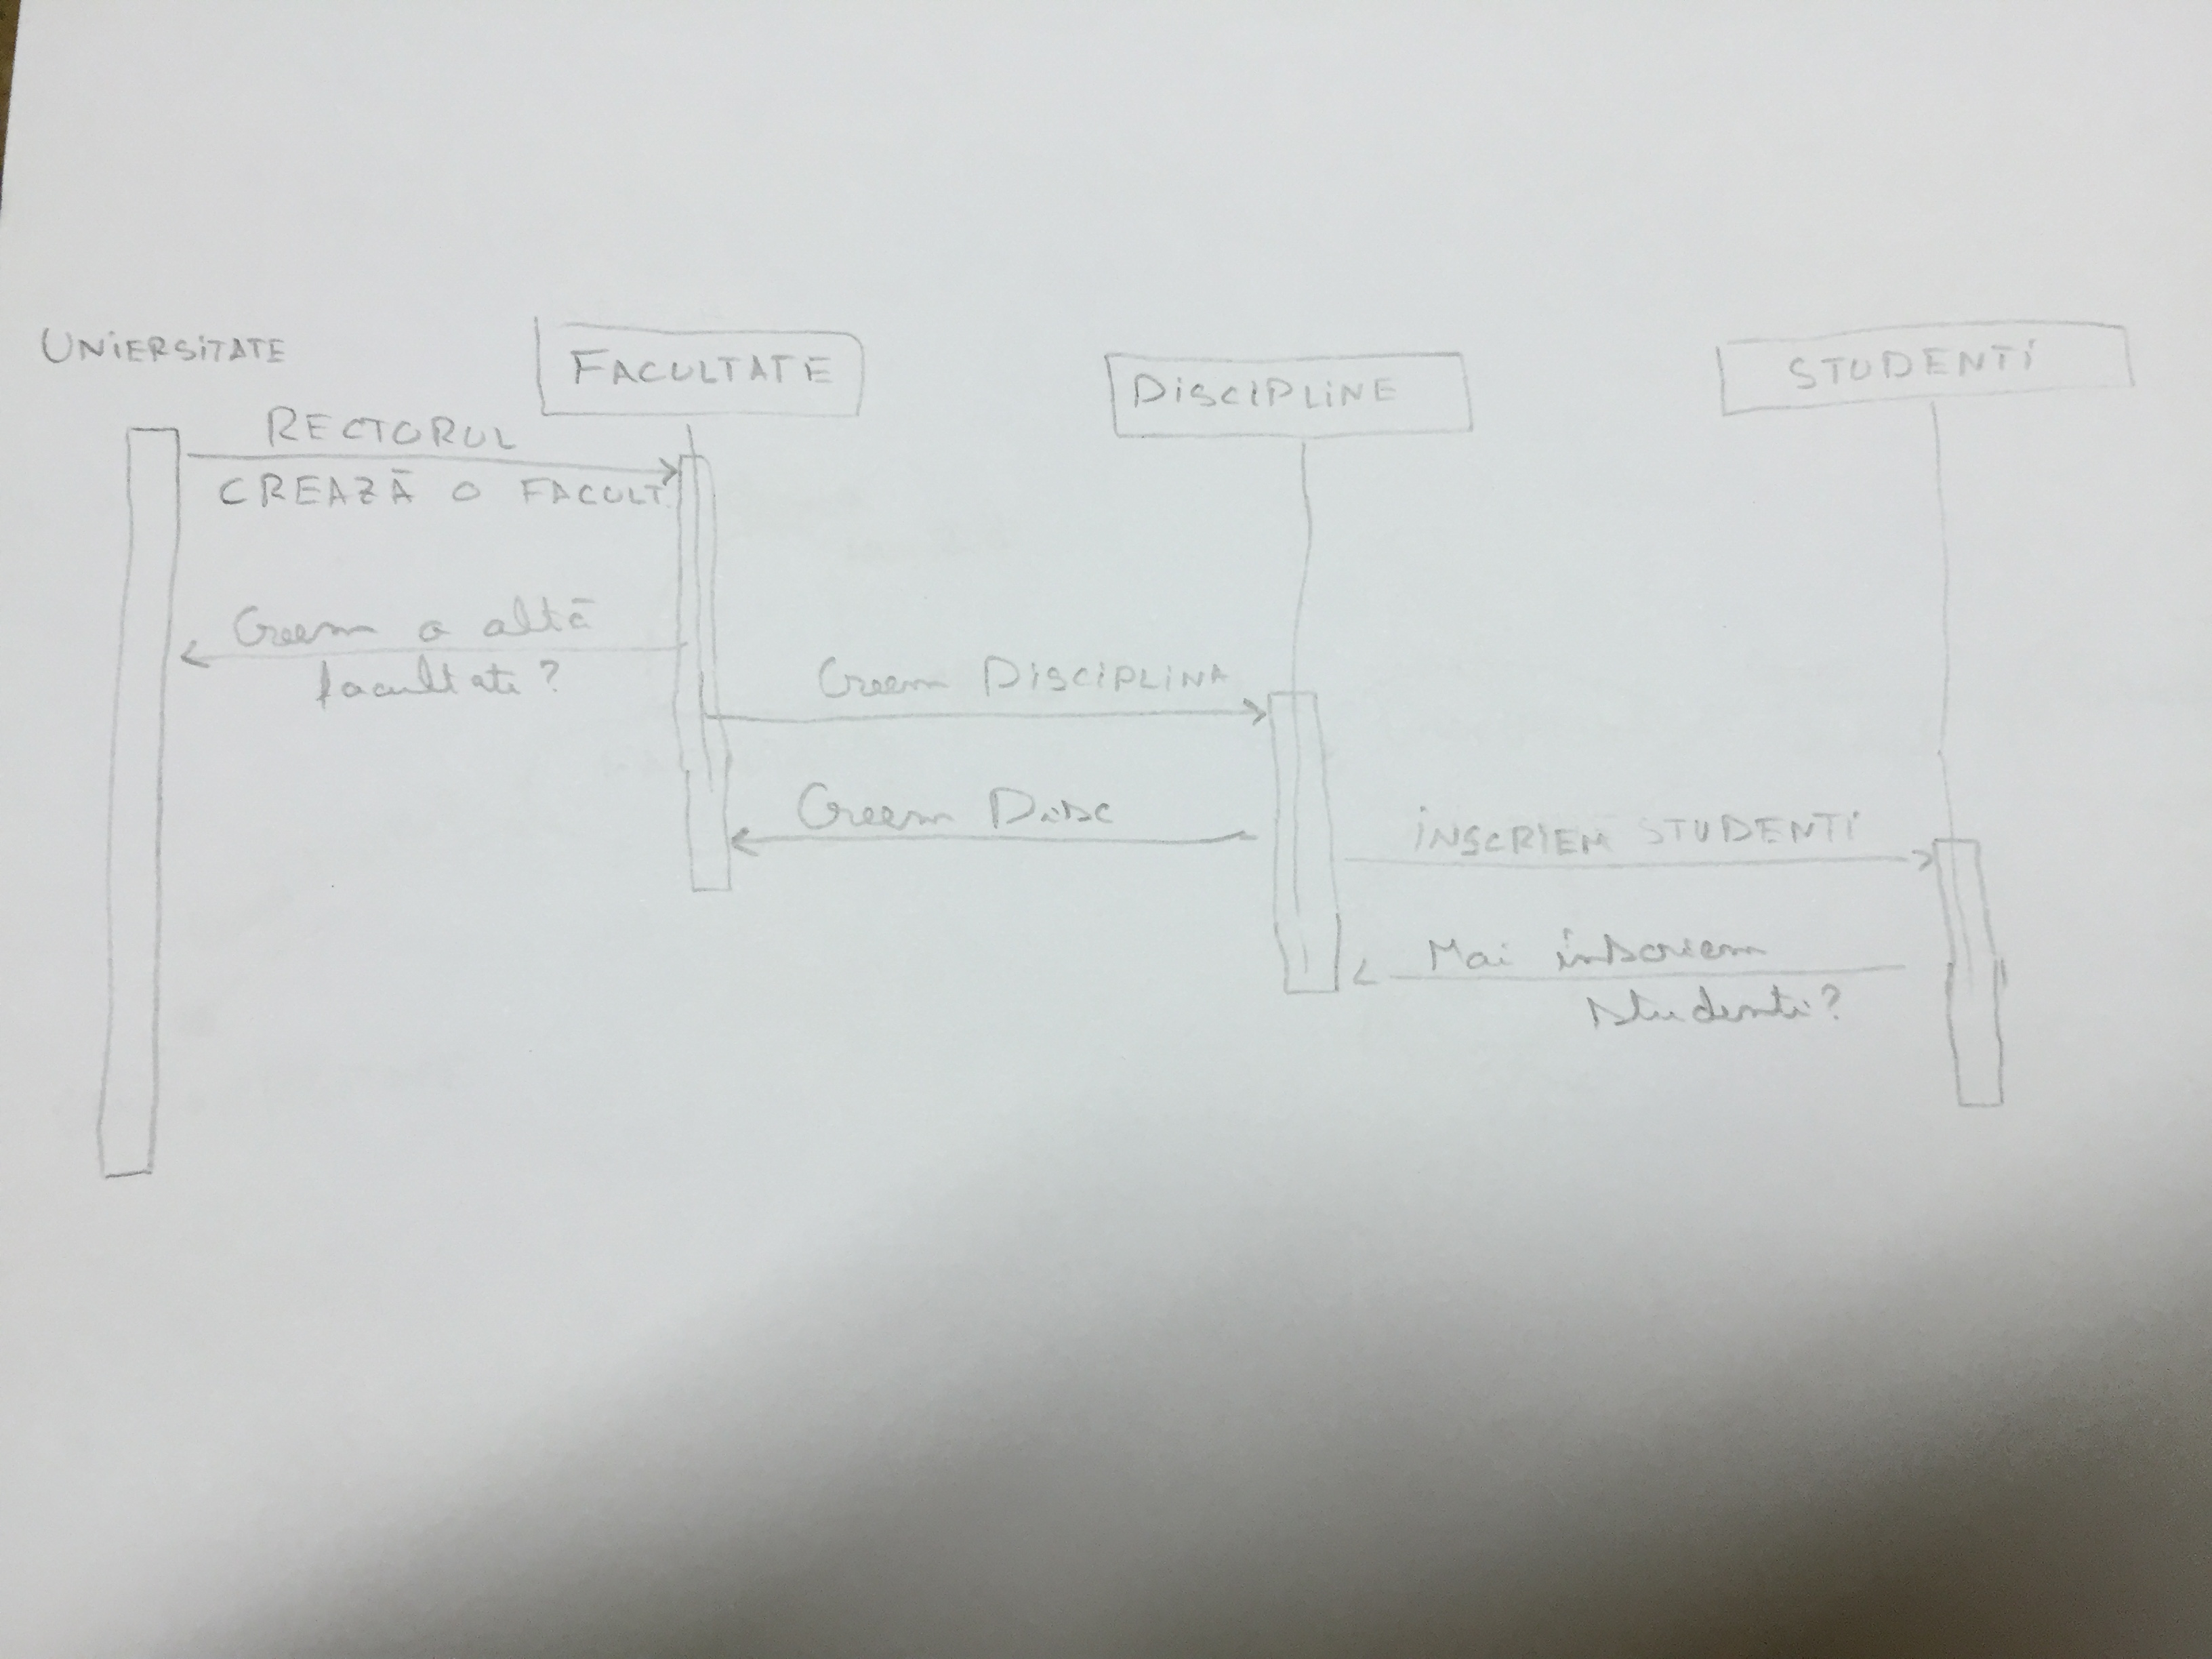 UNIERSITATE
FACULTATE
DISCIPLINE
STUDENTI
RECTORUL
CREAZĀ O FACULT
Creem o altā
facultate?
Creem DISCIPLINA
Creem Disc
INSCRIEM STUDENTI
Mai înscriem
studenti?